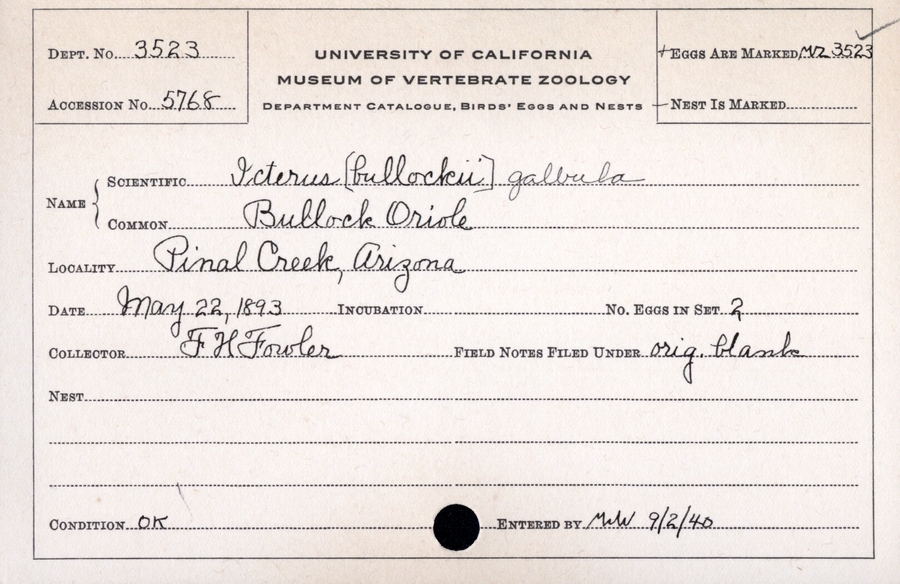 DEPT. NO. 3523
ACCESSION NO. 5768
UNIVERSITY OF CALIFORNIA
MUSEUM OF VERTEBRATE ZOOLOGY
DEPARTMENT CATALOGUE, BIRDS' EGGS AND NESTS
+EGGS ARE MARKED MVZ 3523
—NEST IS MARKED
NAME
SCIENTIFIC Icterus [bullockii] galbula
COMMON Bullock Oriole
LOCALITY Pinal Creek, Arizona
DATE May 22, 1893 INCUBATION NO. EGGS IN SET 2
COLLECTOR F H Fowler FIELD NOTES FILED UNDER orig. blank
NEST
CONDITION OK ENTERED BY 9/2/40